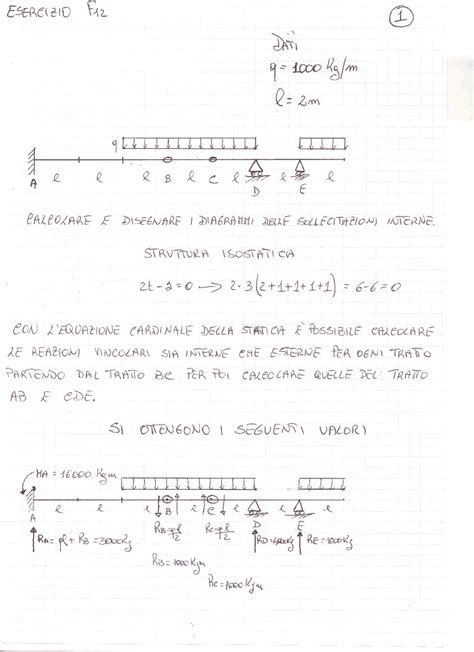 ESERCIZIO F12
1
DATI
q = 1000 Kg/m
l = 2m
q
A l l l B l C l D l E l
CALCOLARE E DISEGNARE I DIAGRAMMI DELLE SOLLECITAZIONI INTERNE.
STRUTTURA ISOSTATICA
CON L'EQUAZIONE CARDINALE DELLA STATICA È POSSIBILE CALCOLARE
LE REAZIONI VINCOLARI SIA INTERNE CHE ESTERNE PER OGNI TRATTO
PARTENDO DAL TRATTO BC PER POI CALCOLARE QUELLE DEL TRATTO
AB E CDE.
SI OTTENGONO I SEGUENTI VALORI
MA = 16000 Kgm
A l l l B l C l D l E l
RA = ql + RB = 3000Kg
RB = ql/2
RC = ql/2
RE = 1000Kg
RB = 1000 Kgm
RC = 1000 Kgm